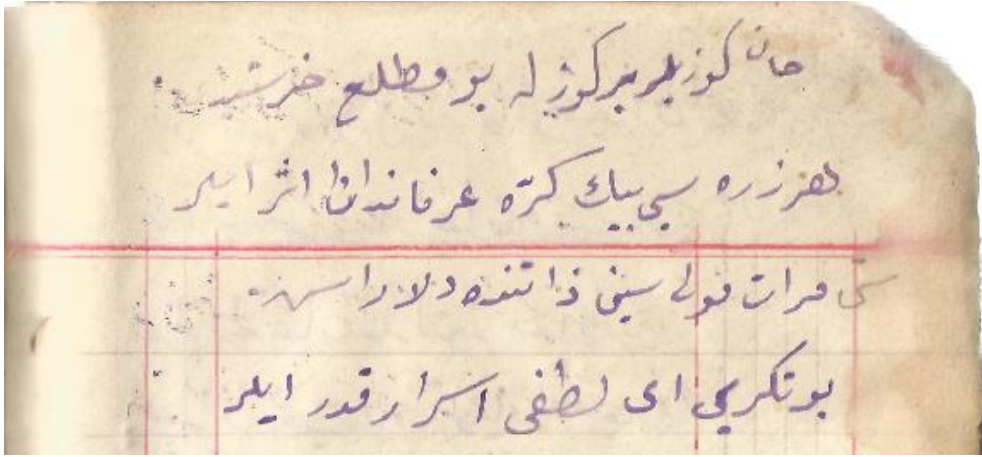 جان كوزيله بر كوزله بو مطلع خرشيد
هر زره سی بیك كرّه عرفاندان اثر ایلر
مرات قولی سینی ذاتنده دلارا
بو تكریمی ای لطفی اسرار قدر ایلر